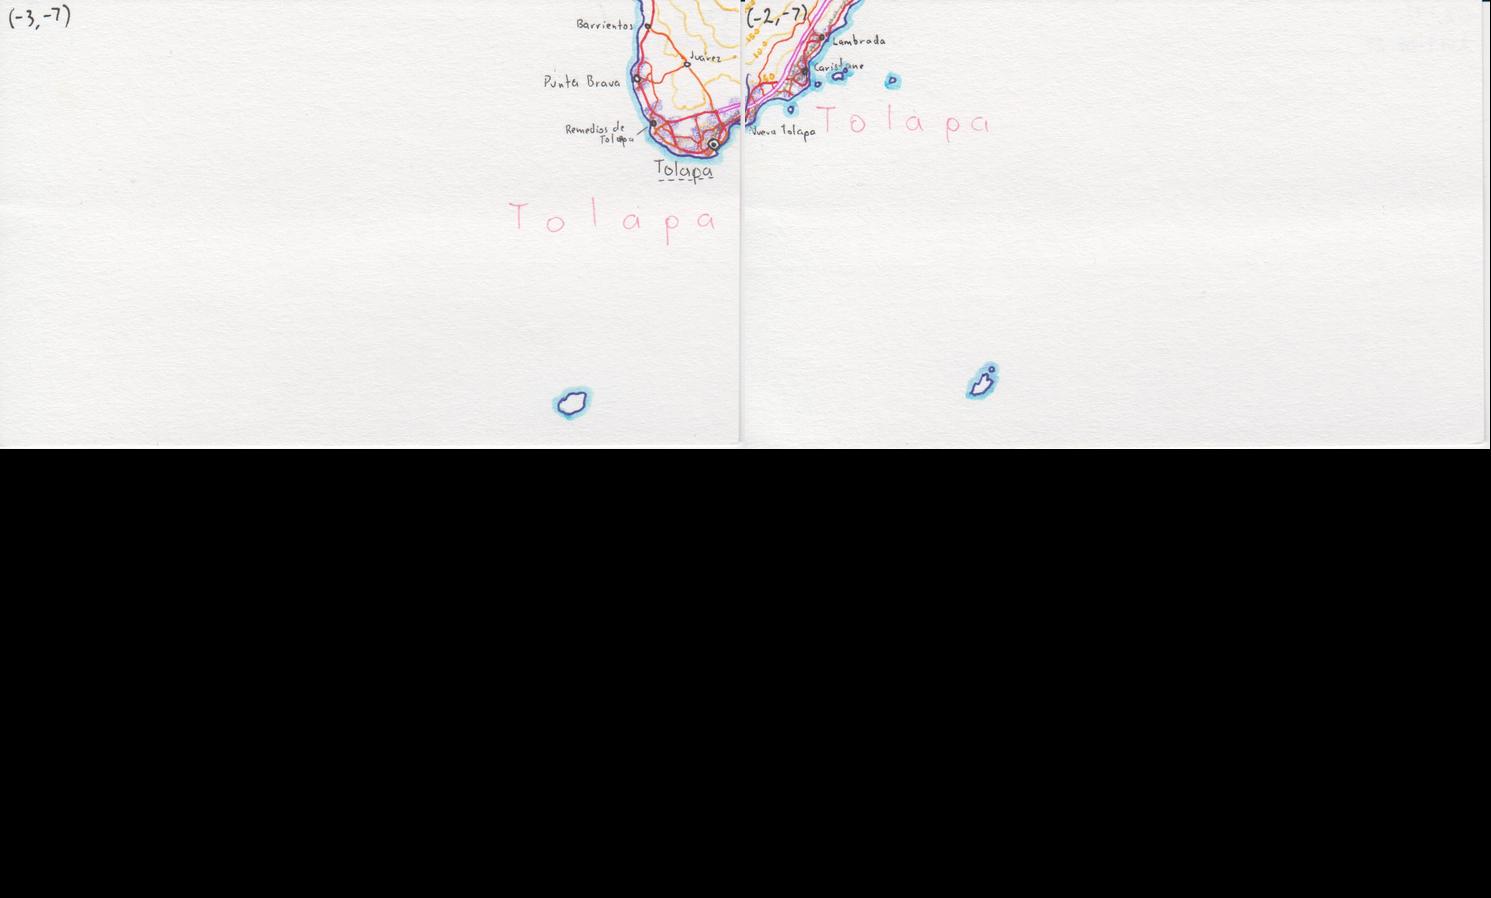 (-3,-7)
Barrientos
Juárez
Punta Brava
Remedios de
Tolapa
Tolapa
Tolapa
(-2,-7)
150
100
50
Lambrada
Caristane
Tolapa
Nueva Tolapa